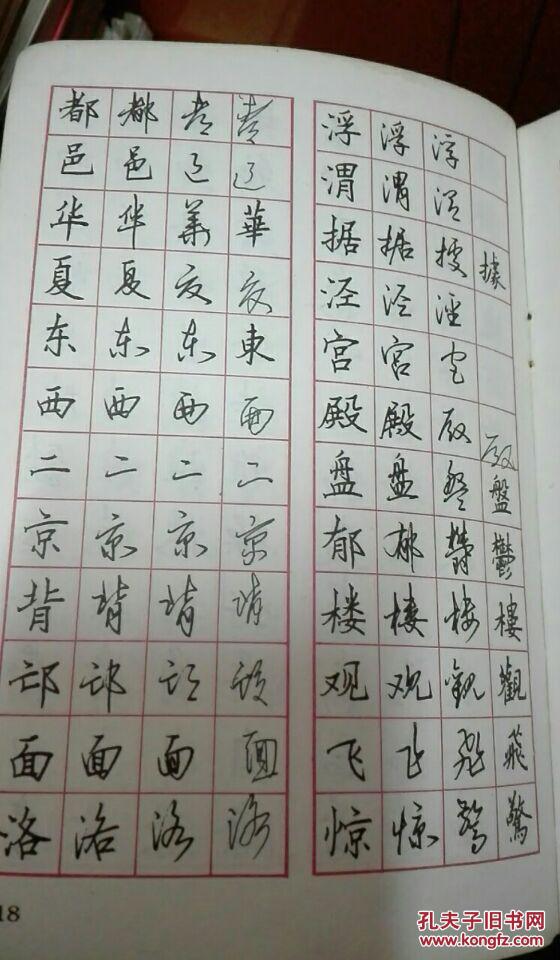 都 都 都 都
邑 邑 邑 邑
华 华 華 華
夏 夏 夏 夏
东 东 东 東
西 西 西 西
二 二 二 二
京 京 京 京
背 背 背 背
邙 邙 邙 邙
面 面 面 面
洛 洛 洛 洛
浮 浮 浮
渭 渭 渭
据 据 據 據
泾 泾 涇
宫 宫 宫
殿 殿 殿 殿
盘 盘 盤 盤
郁 郁 鬱 鬱
楼 楼 楼 樓
观 观 觀 觀
飞 飞 飛 飛
惊 惊 驚 驚
18
孔夫子旧书网
kongfz.com